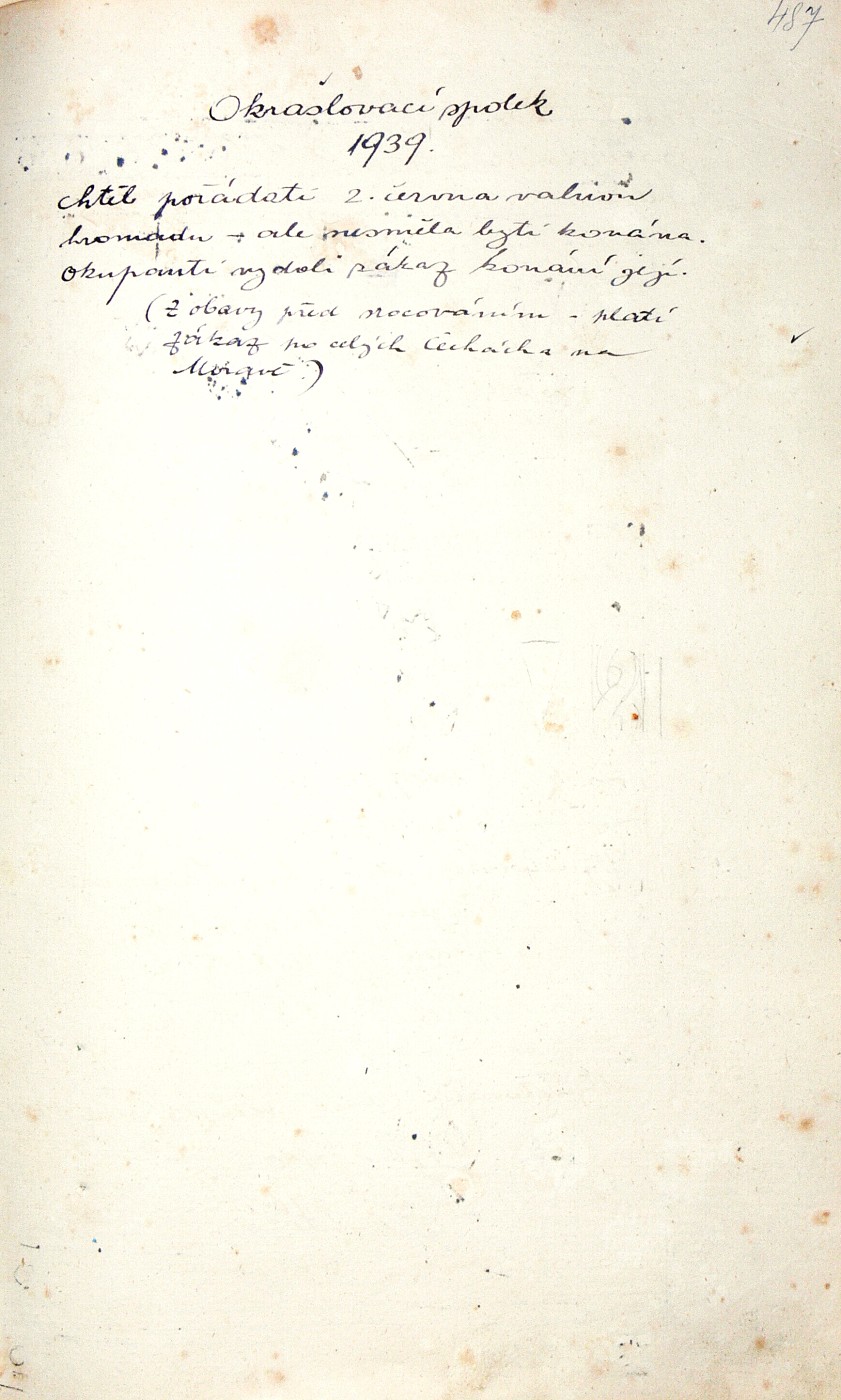 487
Okrašlovací spolek
1939.
chtěl pořádati 2. června valnou
hromadu – ale nesměla býti konána.
Okupanti vydali zákaz konání její.
(Z obavy před srocováním – platí
zákaz po celých Čechách a na
Moravě.)